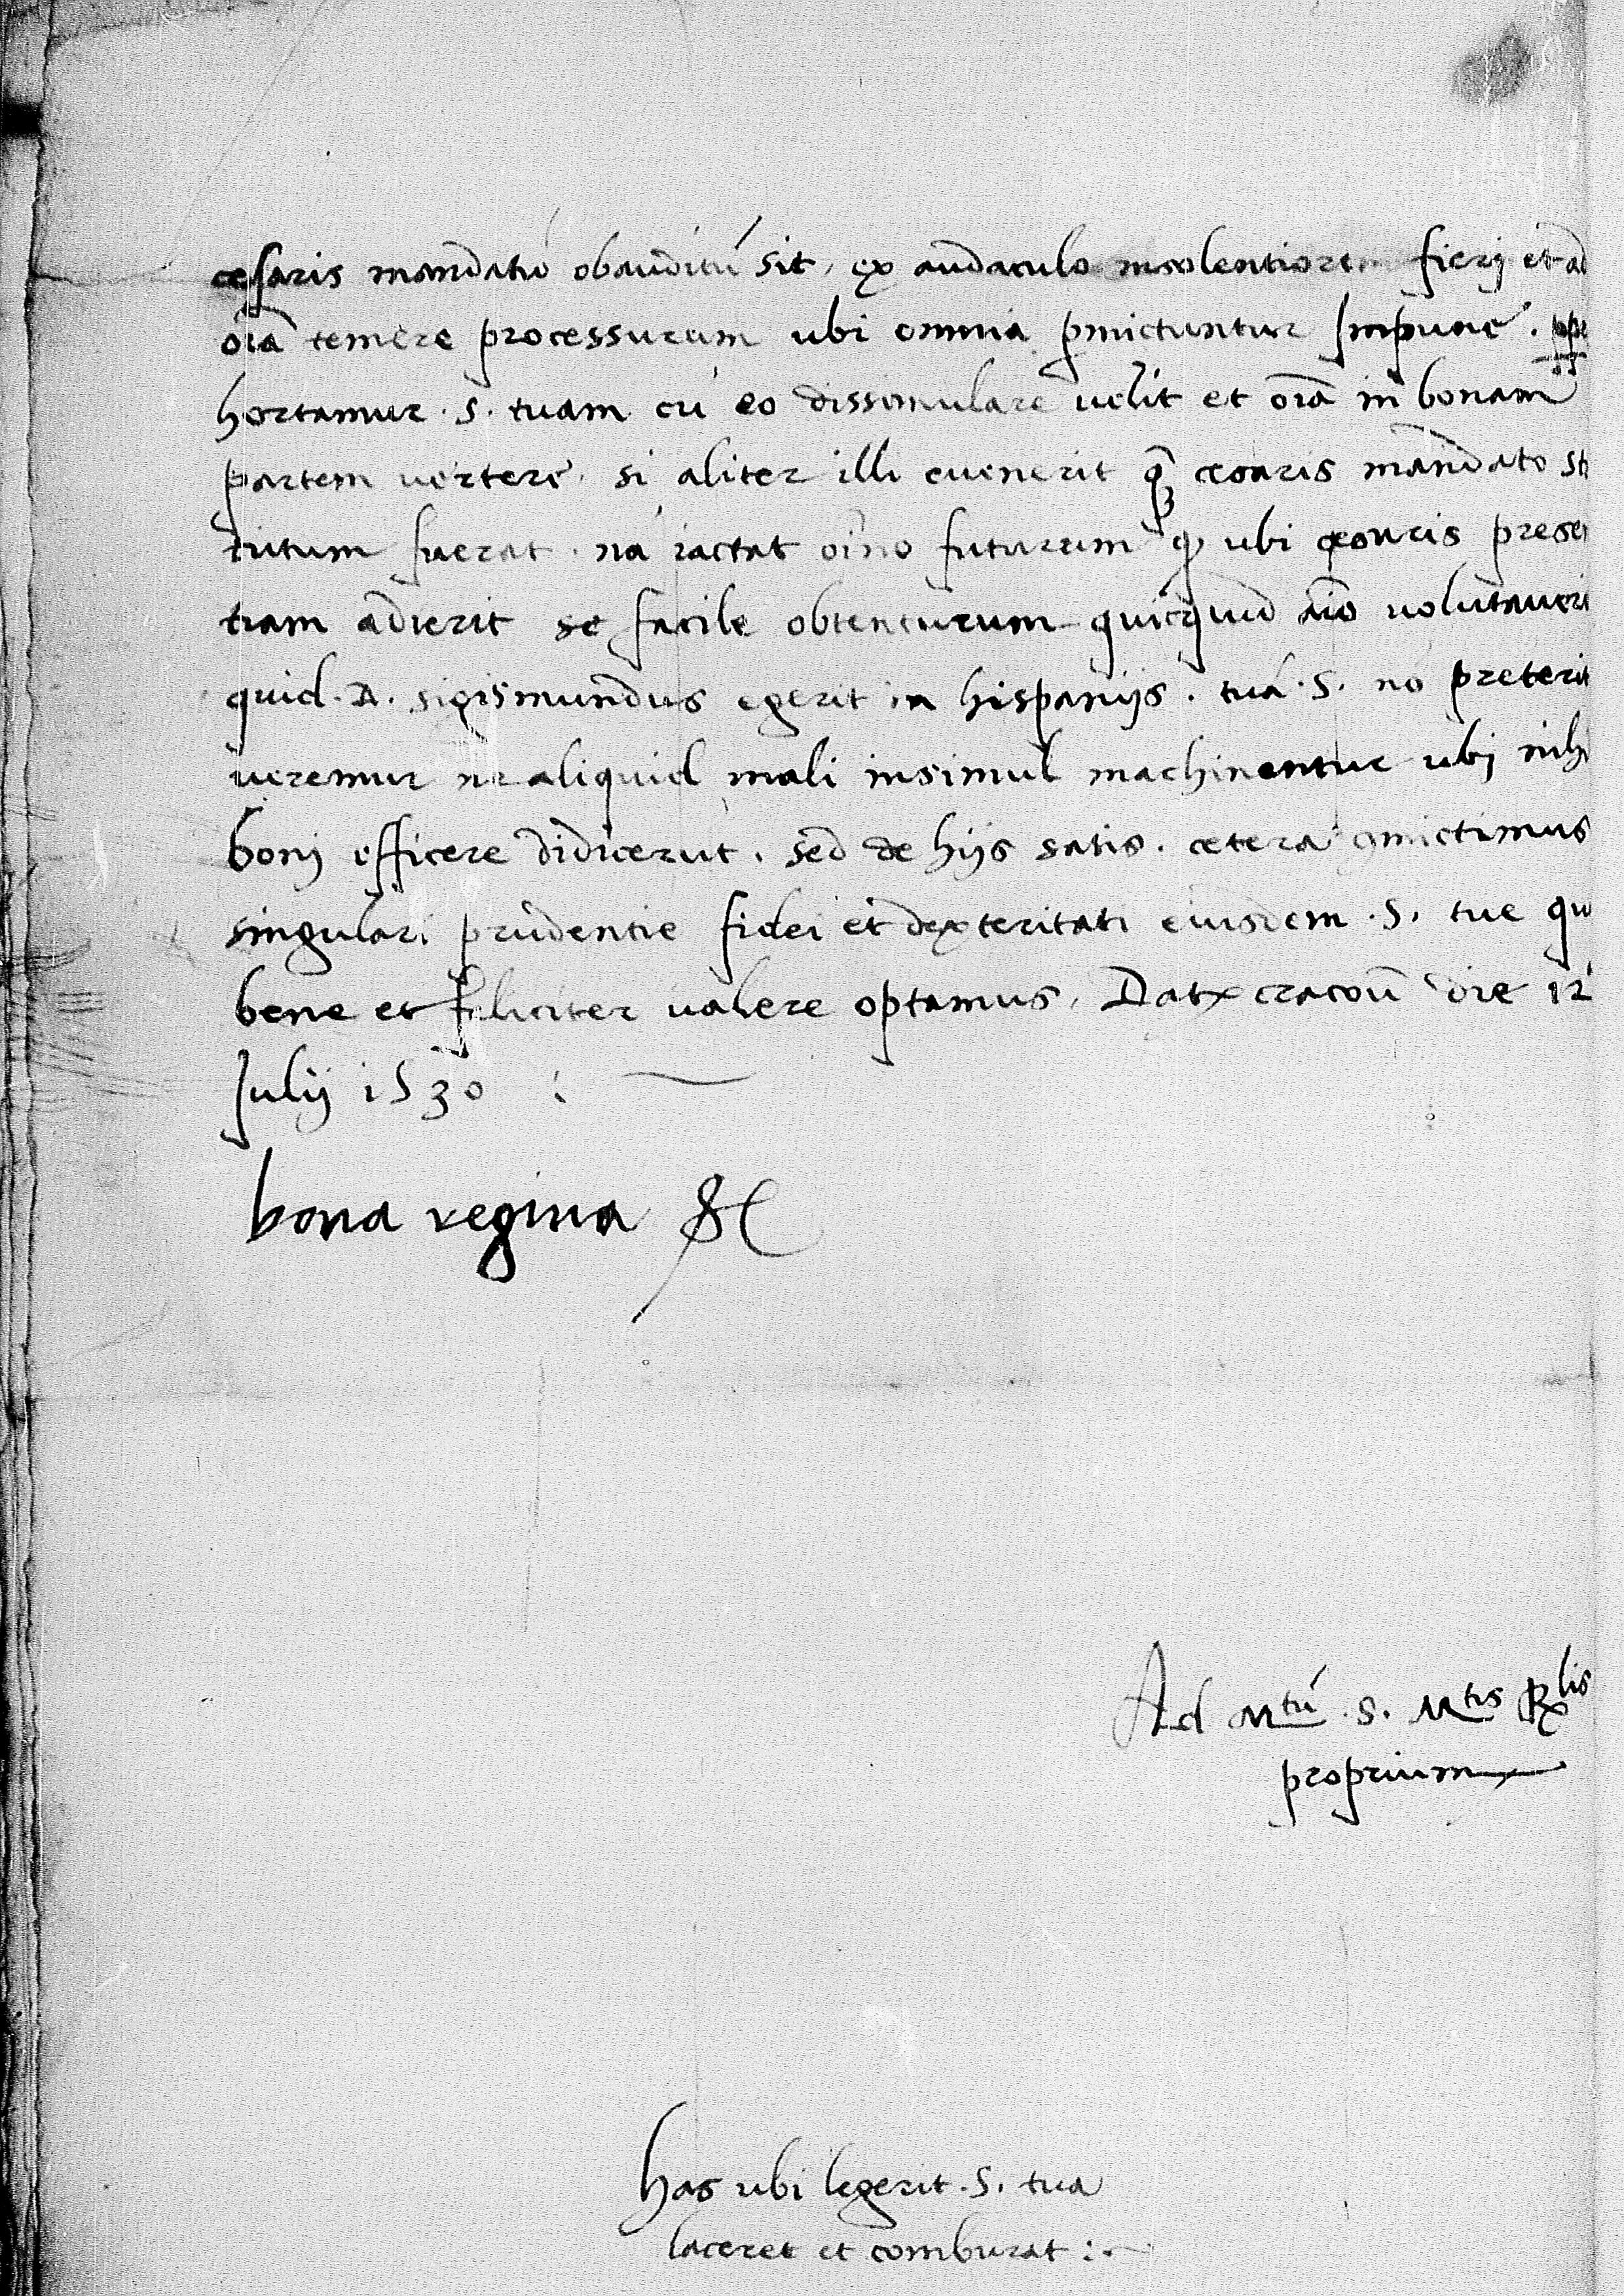 cesaris mandatū obauditū sit, ex audaculo insolentiorem fierj et ad
oīa temere processurum ubi omnia pmictuntur Impune.
hortamur .S. tuam cū eo dissimulare velit et oīa in bonam
partem vertere, si aliter illi evenerit cesaris mandato
tutum fuerat. nā iactat oīno futurum ꝙ ubi cesaris presen
tiam adierit se facile obtenturum quicquid aīo volutaveri
quid .D. sigismundus egerit in hispanijs. tuā .S. nō preterit
veremur ne aliquid mali insimul machinentur ubj nih
bonj efficere didicerūt, sed de hijs satis. cetera cōmictimus
singulari prudentie fidei et dexteritati eiusdem .S. tue qu
bene et feliciter valere optamus, Datx cracovīe die 12
Julij 1530 :
bona regina &c
Ad Mtū .S. Mtis Rlis
proprium
has ubi legerit .S. tua
laceret et comburat :.